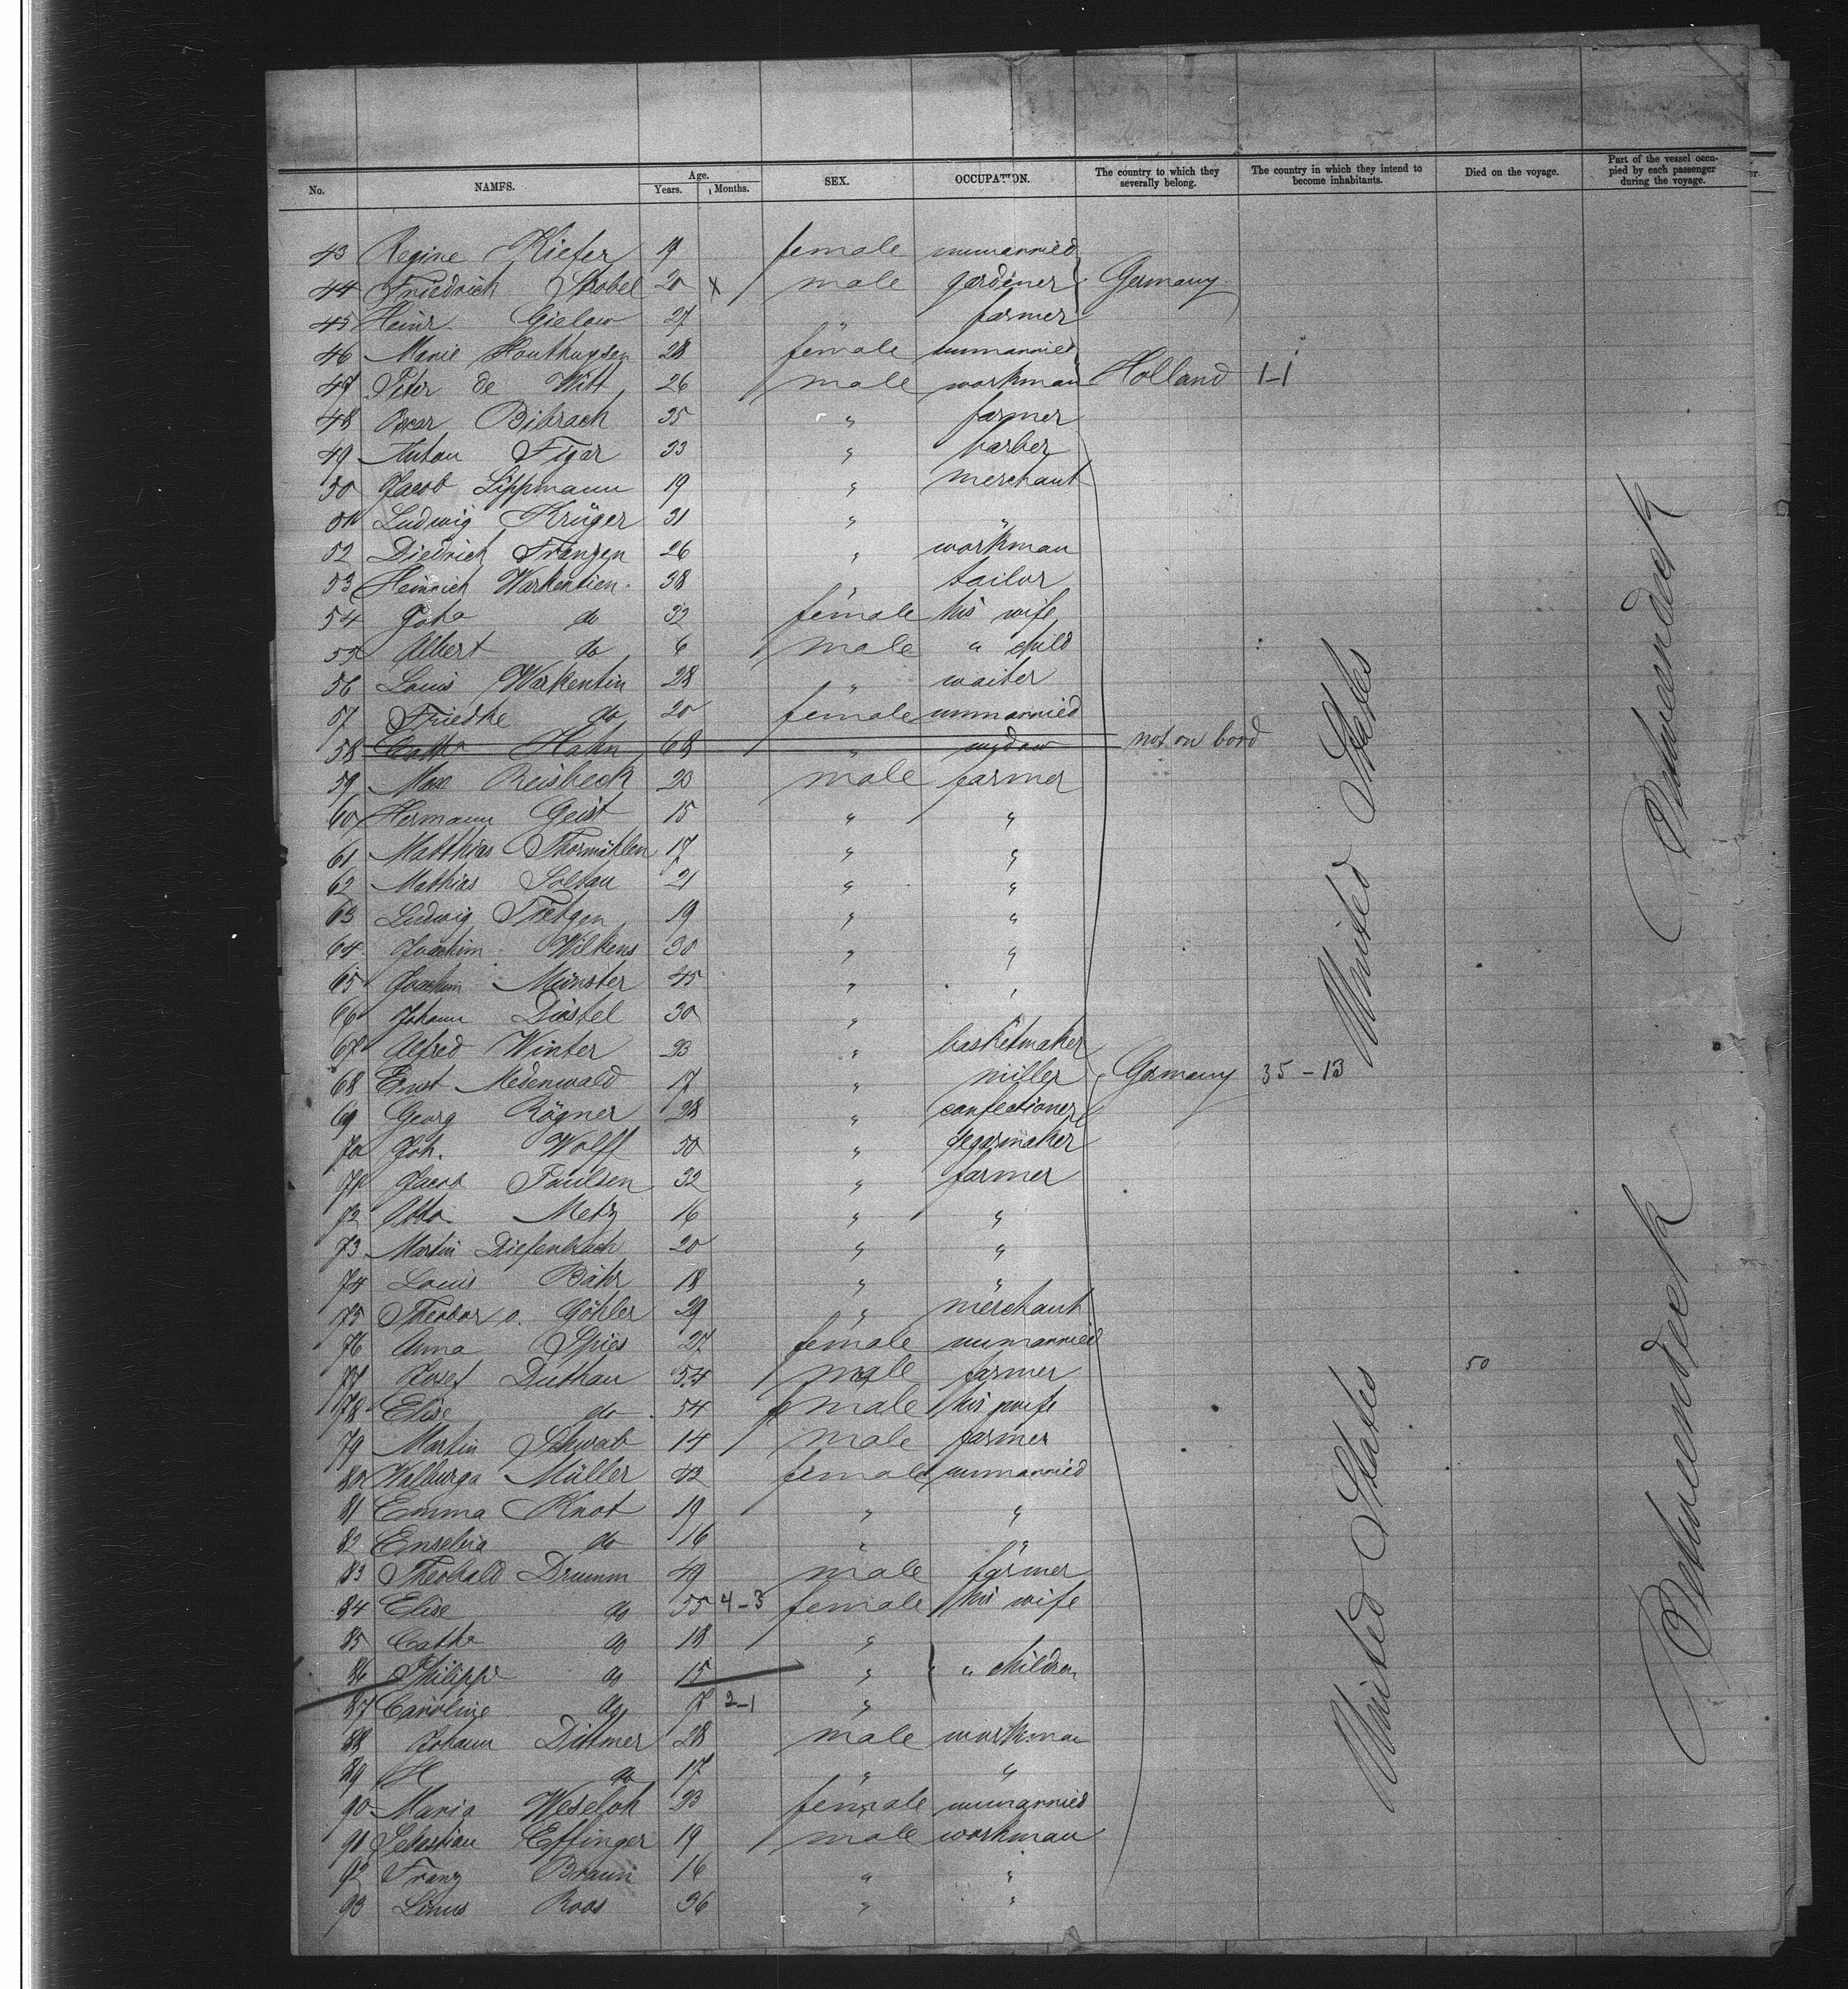 No. NAMES. Age. Years. Months. SEX. OCCUPATION. The country to which they severally belong. The country in which they intend to become inhabitants. Died on the voyage. Part of the vessel occupied by each passenger during the voyage.
43 Regine Kiefer 19 female unmarried
44 Friedrich Strobel 20 X male gardener Germany
45 Heinr. Gielow 27 " farmer
46 Marie Houthuysen 28 female unmarried
47 Peter de Witt 26 male workman Holland 1-1
48 Oscar Bibrach 35 " farmer
49 Anton Figar 33 " barber
50 Jacob Lippmann 19 " merchant
51 Ludwig Krüger 31 " "
52 Diedrich Franzen 26 " workman
53 Heinrich Warkentien 38 " tailor
54 do 32 female his wife
55 Albert do 6 male " child
56 Louis Warkentin 28 " waiter
57 Friedke do 20 female unmarried
58 Cathr Hahn 68 " wydow not on bord
59 Max Reisbeck 23 male farmer
60 Hermann Geist 15 " "
61 Matthias Thormählen 17 " "
62 Mathias Soltau 21 " "
63 Ludwig Tietgen 19 " "
64 Joachim Wilkens 30 " "
65 Joachim Münster 45 " "
66 Johann Distel 30 "
67 Alfred Winter 23 " basketmaker
68 Ernst Medenwald 17 " miller Germany 35-13
69 Georg Rögner 28 " confectioner
70 Joh. Wolff 50 " segarmaker
71 Jacob Paulsen 32 " farmer
72 Otto Metz 16 " "
73 Martin Diefenbach 20 " "
74 Louis Bähr 18 " "
75 Theodor v. Göhler 29 " merchant
76 Anna Spies 27 female unmarried
77 Josef Duthau 54 male farmer 50
78 Elise do 54 female his wife
79 Martin Schwab 14 male farmer
80 Walburga Müller 42 female unmarried
81 Emma Knot 19 " "
82 Eusebia do 16 " "
83 Theobald Drumm 49 male farmer
84 Elise do 55 4-3 female his wife
85 Cathr do 18 "
86 Philippe do 15 " " children
87 Caroline do 7 2-1 "
88 Johann Dittmer 28 male workman
89 H do 17 " "
90 Maria Weseloh 23 female unmarried
91 Sebastian Effinger 19 male workman
92 Franz Braun 16 " "
93 Linus Roos 36 " "
United States
United States
Betweendeck
Betweendeck